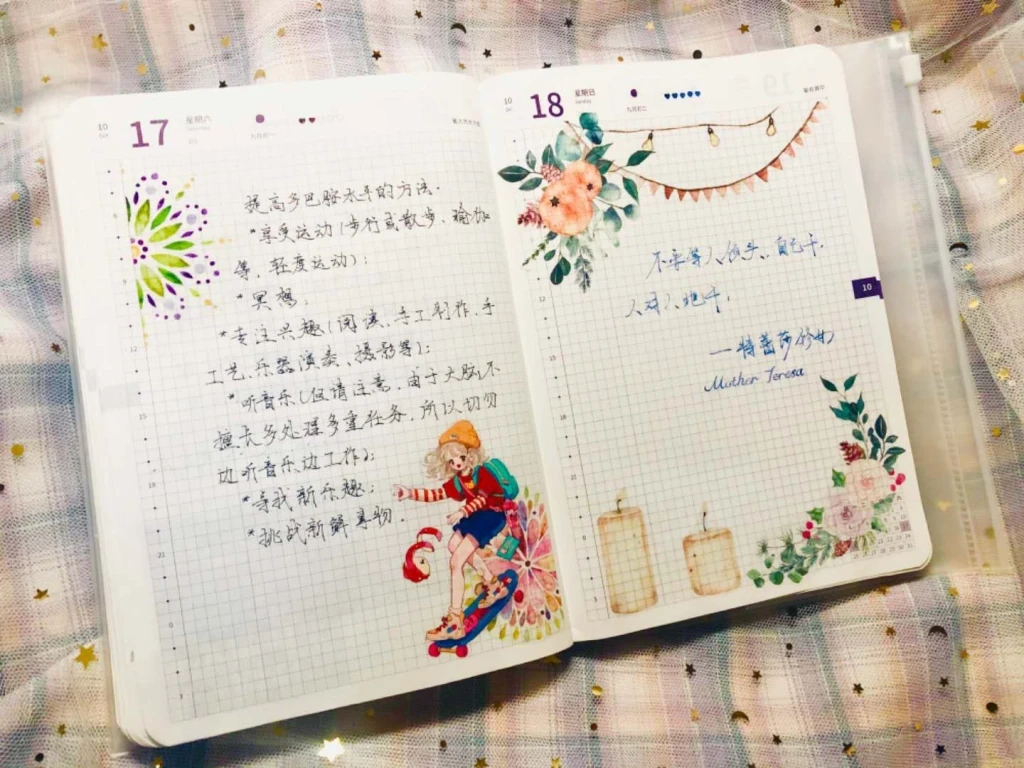 10
17
星期六
Saturday
九月初一
提高多巴胺水平的方法.
*享受运动(步行或散步、瑜伽
等,轻度运动);
*冥想;
*专注兴趣(阅读、手工制作、手
工艺、乐器演奏、摄影等);
*听音乐(但请注意,由于大脑不
擅长多处理多重任务,所以切勿
边听音乐边工作);
*寻找新乐趣;
*挑战新鲜事物.
12
15
18
21
0
3
10
18
星期日
Sunday
九月初二
不要等人领头、自己干.
人对人地干.
—特蕾莎修女
Mother Teresa
10